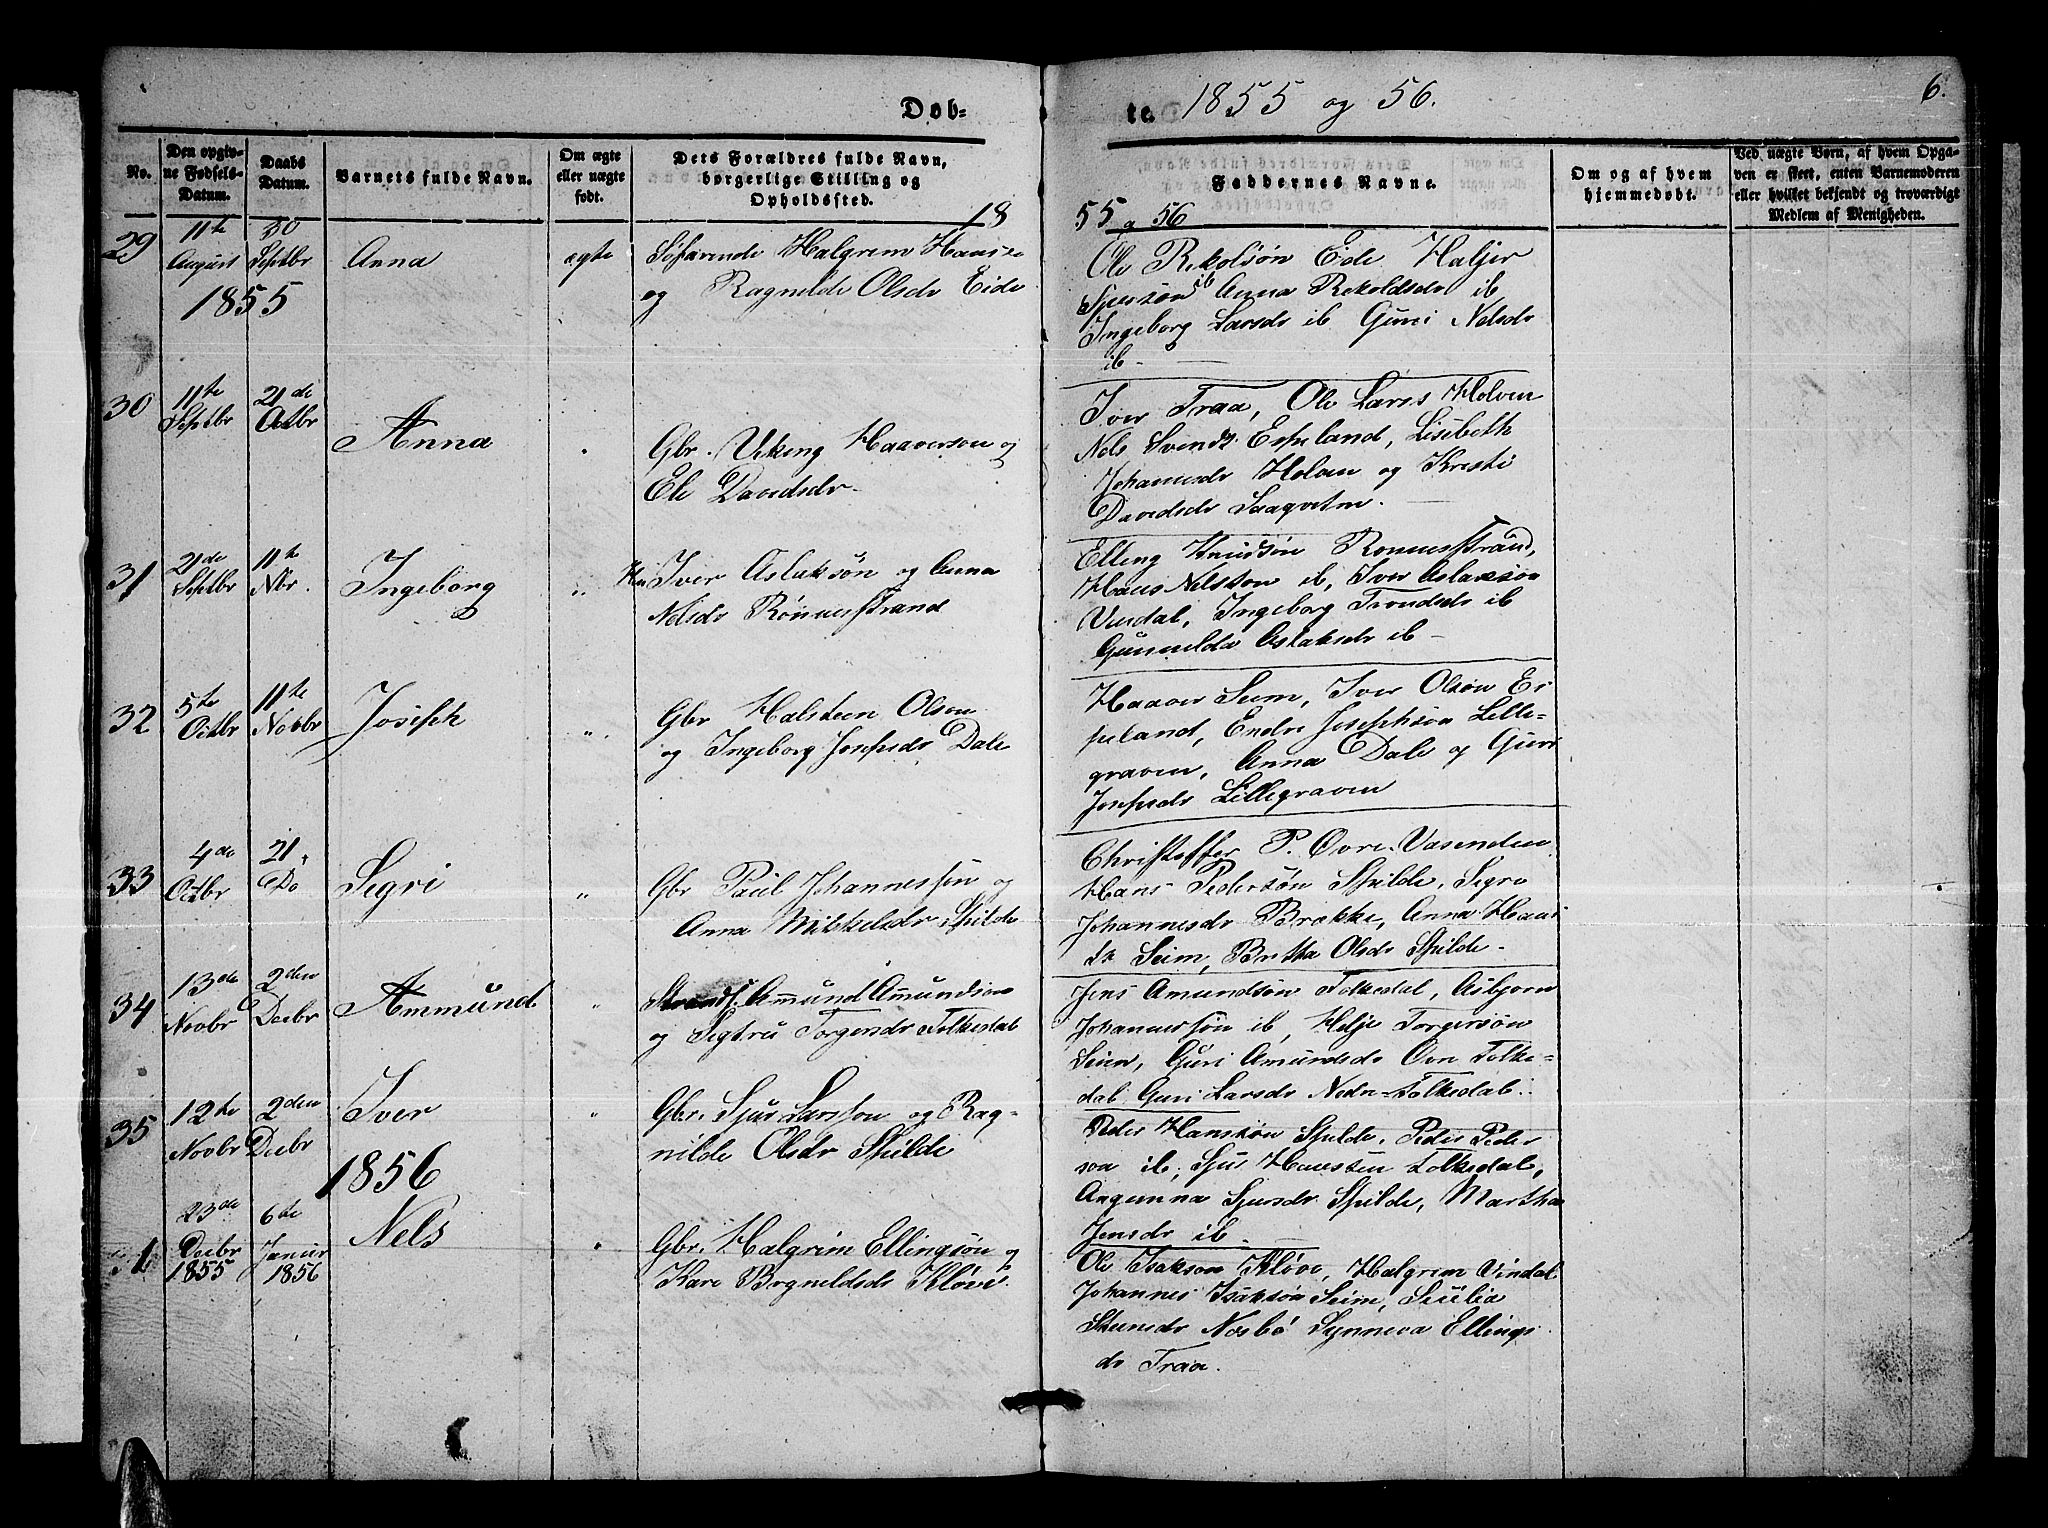 Døb-
te. 1855 og 56.
6.
No.
Den opgiv-
ne Fødsels-
Datum.
Daabs
Datum.
Barnets fulde Navn.
Om ægte
eller uægte
født.
Dets Forældres fulde Navn,
borgerlige Stilling og
Opholdssted.
Faddernes Navne.
Om og af hvem
hjemmedøbt.
Ved uægte Børn, af hvem Opga-
ven er skeet, enten Barnemoderen
eller hvilket bekjendt og troværdigt
Medlem af Menigheden.
18
55 og 56
29
11te
August
1855
30
Septbr
Anna
ægte
Søfarende Halgrim Hanss
og Ragnilde Olsdr Eide
Ole Rekolsøn Eide Haljer
Sjurson ib Anna Rekoldsdr ib
Ingeborg Larsdr ib Guri Nelsdr
ib
30
11te
Septbr
21de
Octbr
Anna
Gbr. Viking Haaverson og
Eli Davidsdr
Iver Traa, Ole Lars Holven
Nels Svends. Espeland, Lisebeth
Johannesdr Holven og Kristi
Davidsdr Saaqvitne.
31
21de
Septbr
11te
Nbr.
Ingeborg
Iver Aslaksøn og Anna
Nelsdr Rønnestrand
Elling Knudsøn Ronnestrand,
Hans Nelsson ib, Iver Aslaksøn
Vindal, Ingeborg Trondsdr ib
Gunnilda Aslaksdr ib
32
5te
Octbr
11te
Novbr
Joseph
Gbr Halsteen Olson
og Ingeborg Josepsdr Dale
Haaver Seim, Iver Olsøn Es
peland, Endre Josephsøn Lille-
graven, Anna Dale og Guri
Josepsdr Lillegraven
33
4de
Octbr
21
Do
Segri
Gbr Paul Johannessøn og
Anna Mikkelsdr Spilde
Christoffer P. Øvre-Vasenden
Hans Pedersøn Spilde, Segro
Johannesdr Brække, Anna Hans
dr Seim, Britha Olsdr Spilde
34
13de
Novbr
2den
Decbr
Ammund
Strands. Amund Amundsen
og Sigtru Torgersdr Folkedal
Jens Amundsøn Folkedal, Asbjørn
Johannessøn ib, Helje Torgersøn
Seim, Guri Amundsdr Øvre Folke-
dal Guri Larsdr Nedre-Folkedal
35
12te
Novbr
2den
Decbr
Iver
Gbr. Sjur Larsson og Rag-
nilde Olsdr Spilde
Peder Hansøn Spilde, Peder Peder
son ib, Sju Hansøn Folkedal,
Angunna Sjursdr Spilde, Martha
Jensdr ib
1856
1
23de
Decbr
1855
6te
Januar
1856
Nels
Gbr. Halgrim Ellingsøn og
Kari Bogneldsdr Kløve
Ole Isakson Kløve, Halgrim Vindal
Johannes Isaksøn Seim,
Steensdr Nosbø Synneva Ellings
dr Traa.